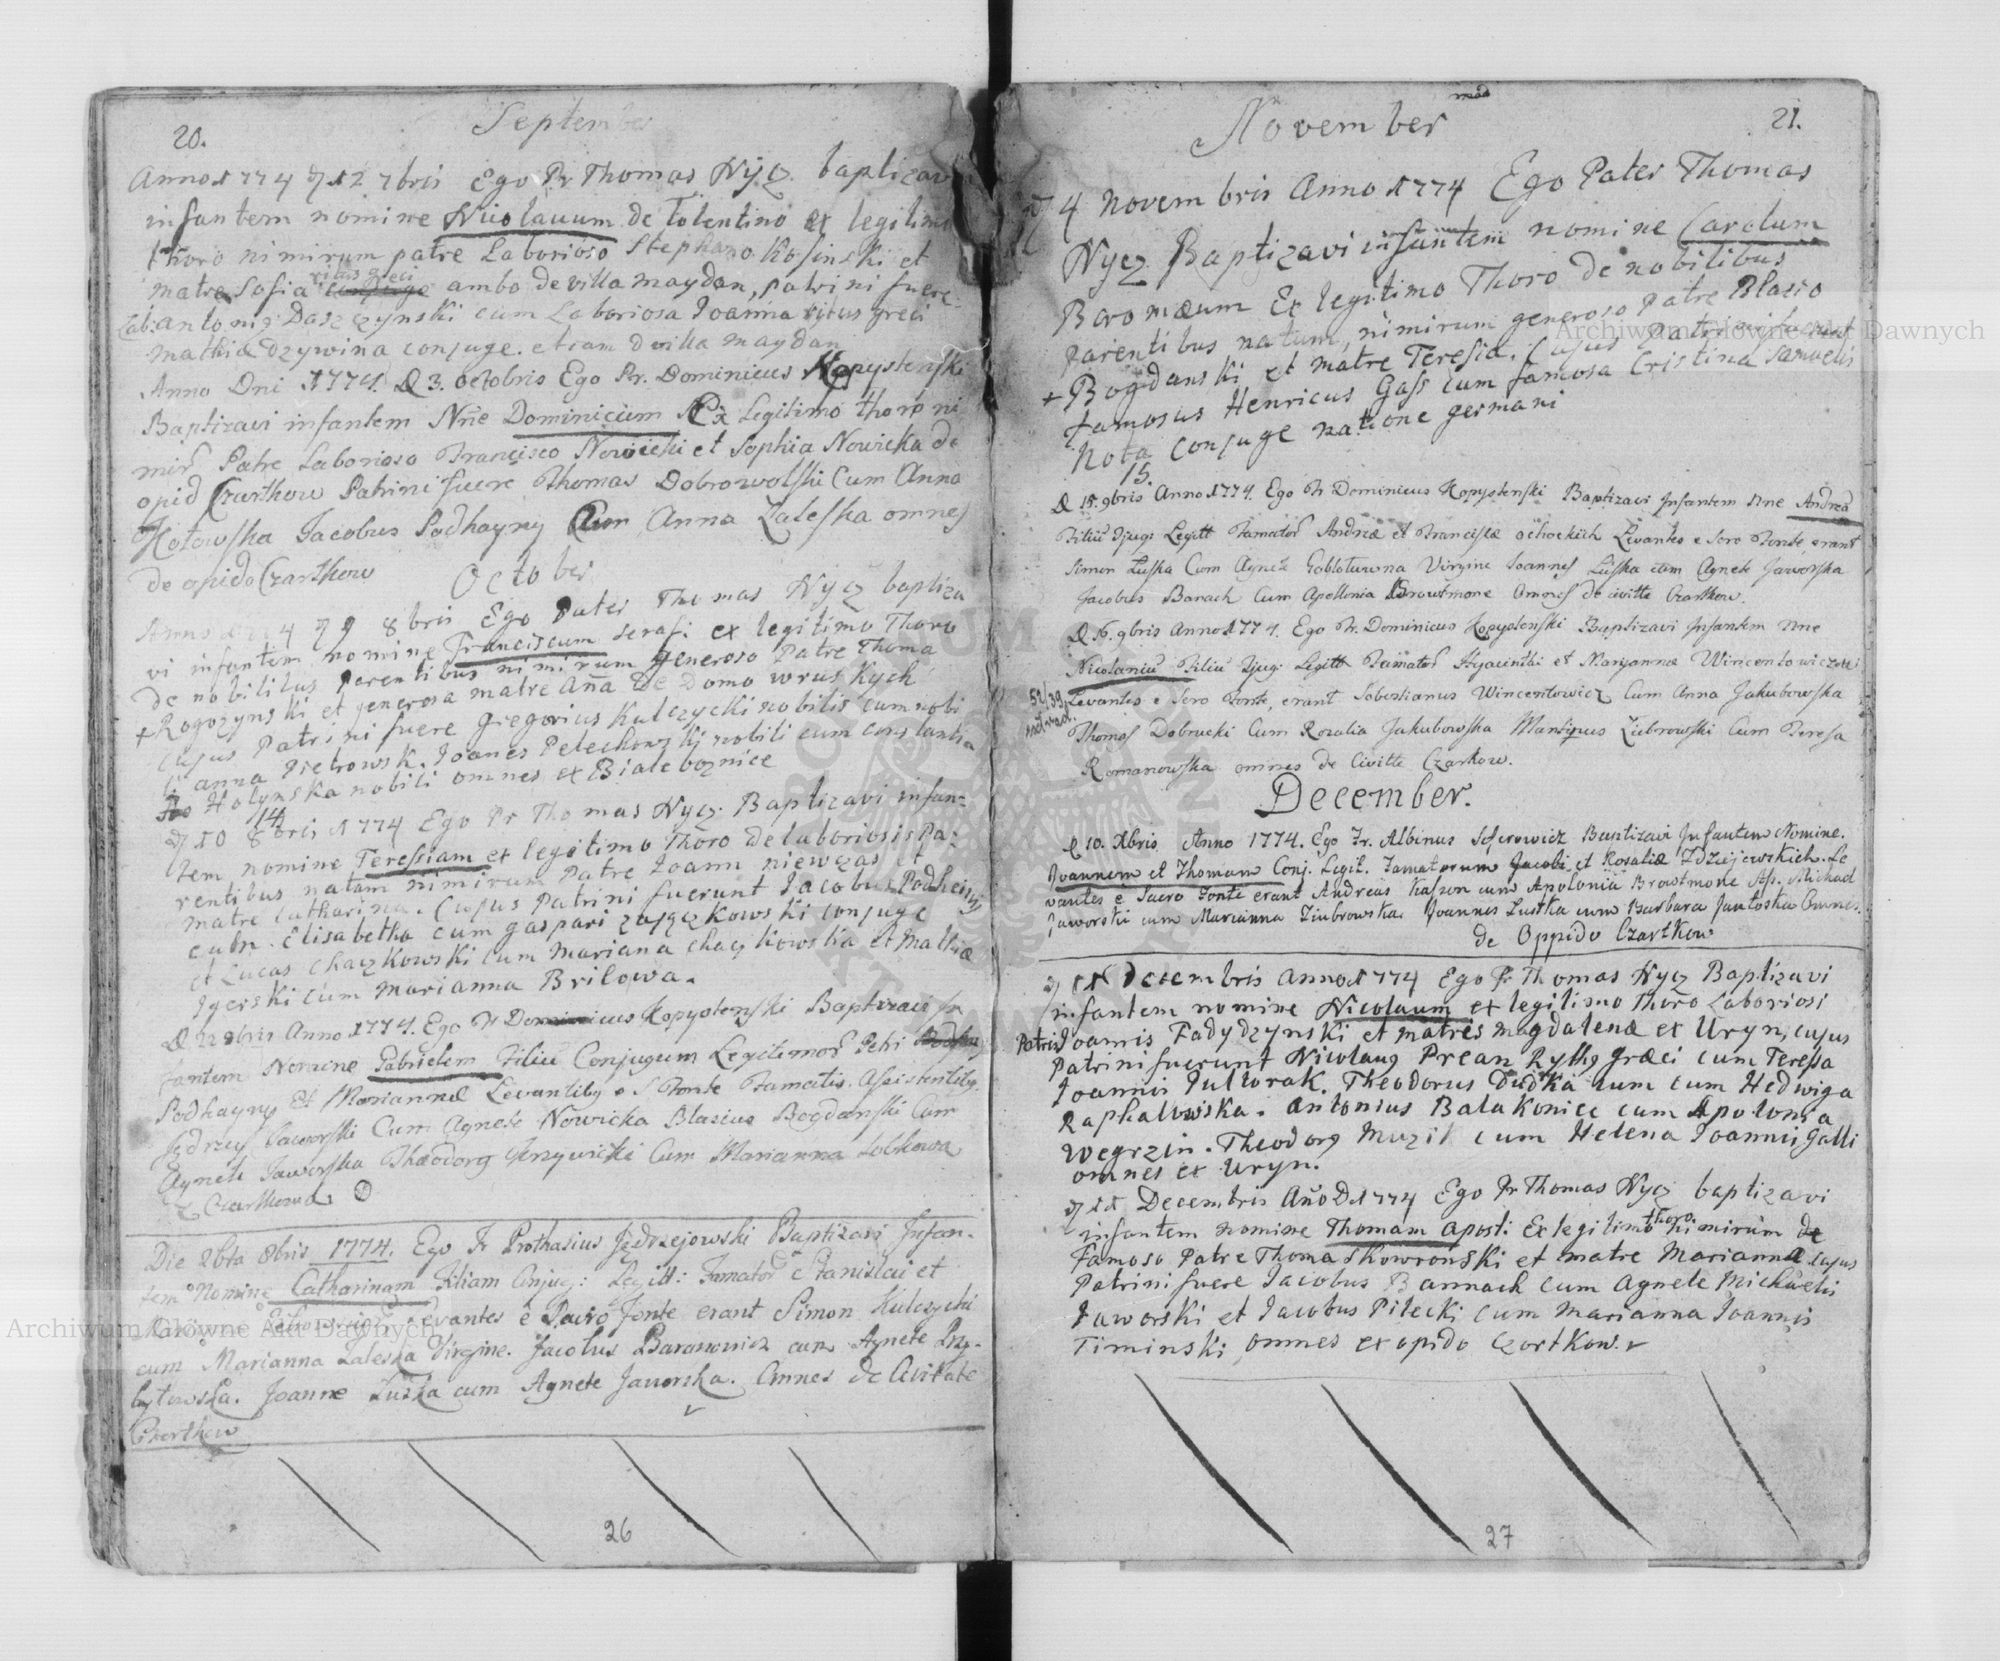 20.
September
Anno 1774 d 12 7bris Ego Pr Thomas Nycz baptizav
infantem nomine Nicolauum de Tolentino ex legitimo
thoro nimirum patre Laborioso Stephano Kosinski et
ritus greci
matre Sofia ambo de villa maydan, patrini fuere
Lab: antonig Daszczynski cum Laboriosa Joanna ritus greci
mathiæ dzywina conjuge. etiam d villa maydan
Anno Dni 1774. D 3. octobris Ego Fr. Dominicus Kopystenski
Baptizavi infantem Nne Dominicum Ex Legitimo thoro ni
mir Patre Laborioso Francisco Nowicki et Sophia Nowicka de
opid Czarthow Patrini fuere Thomas Dobrowolski Cum Anna
Kotowska Jacobus Podhayny Cum Anna Zaleska omnes
de opido Czarthow
October
Anno 1774 d 9 8bris Ego Pater Thomas Nycz baptiza
vi infantem nomine Franciscum serafi ex legitimo Thoro
de nobilibus parentibus nimirum generoso Patre Thoma
+ Rogozynski et generosa matre Aña De Domo wruskych
cujus patrini fuere gregorius Kulczycki nobilis cum nobi
li anna Pietrowsk. Joanes Pelechowzkj nobili cum constantia
Holynska nobili omnes ex Biale boznice
14
d 10 8bris 1774 Ego Pr Thomas Nycz Baptizavi infan=
tem nomine Teressiam ex legitimo Thoro de laboriosis Pa:
rentibus natam nimirum patre Joann niewczas et
matre Catharina. Cujus patrini fuerunt Jacobus Podheisny
cum Elisabetha cum gaspari zajączkowski conjuge
et Lucas chaczkowski cum mariana chaczkowska et Mathiæ
Jgerski cum marianna Brilowa.
D 22 8bris Anno 1774. Ego Fr Dominicus Kopystenski Baptizavi In
fantem Nomine Gabrielem Filiu Conjugum Legitimor Petri
Podhayny Et Mariannæ Levantibg e S Fonte Famatis Assistentibg
Jędrzey Jaworski Cum Agnete Nowicka Blasius Bogdanski Cum
Agnete Jaworska Theodorg Krzywicki Cum Marianna Lobkowa
z Czarthowa
Die 26ta 8bris 1774. Ego Fr Prothasius Jędrzejowski Baptizavi Infan-
tem Nomine Catharinam Filiam Conjug: Legitt: Famator Stanislai et
Levantes e Sacro fonte erant Simon Kulczycki
cum Marianna Zaleska Virgine. Jacobus Baranowicz cum Agnete Przy-
bytowska. Joanne Luska cum Agnete Jaworska. Omnes de Civitate
Czorthow
26
November
21.
d 4 novembris Anno 1774 Ego Pater Thomas
Nycz Baptizavi infantem nomine Carolum
Boromæum Ex legitimo Thoro de nobilibus
parentibus natum, nimirum generoso patre Blasio
+ Bogdanski et matre Teresia. Cujus patrini fuerunt
famosus Henricus Gass cum famosa Cristina Samuelis
Nota conjuge natione germani
15.
D 15. 9bris Anno 1774. Ego Fr Dominicus Kopystenski Baptizavi Infantem Nne Andrea
Filiu Djug: Legitt Famator Andreæ et Franciscæ ochockich Levantes e Sero Fonte, erant
Simon Luska Cum Agnete Gobloturwna Virgine Joannes Luska cum Agnete Jaworska
Jacobus Banach Cum Apollonia Browtmone Omnes de civitte Czartkow.
D 16. 9bris Anno 1774. Ego Fr. Dominicus Kopystenski Baptizavi Infantem Nne
Nicolaniu Filiu Djug: Legitt Famator Hyacinthi et Maryannæ Wincentowiczow
52/39
Levantes e Sero Fonte, erant Sobestianus Wincentowicz Cum Anna Jakubowska
Thomas Dobrucki Cum Rozalia Jakubowska Martinus Zubrowski Cum Teresa
Romanowska omnes de Civitte Czarkow.
December.
D 10. Xbris Anno 1774. Ego Fr. Albinus Seferowicz Baptizavi Infantem Nomine.
Joannem et Thomam Conj. Legit. Famatorum Jacobi et Rosaliæ Zdziejewskich. Le
vantes e Sacro Fonte erant Andreas Kaszon cum Apolonia Browtmone Ass. Michael
Jaworski cum Marianna Ziubrowska Joannes Lustka cum Barbara Jantoska Omnes.
de Oppido Czartkow
d 11 Decembris anno 1774 Ego Pr Thomas Nycz Baptizavi
infantem nomine Nicolaum ex legitimo Thoro Laboriosi
Patris Joannis Fadydzynski et matris magdalenæ ex Uryn, cujus
patrini fuerunt Nicolaug Prean Rythg Græci cum Teressa
Joannis Jultorak. Theodorus Dudka cum cum Hedwiga
Raphalowska. Antonius Balakonice cum Apolonia
Wegrzin. Theodorg Muzik cum Helena Joannis Galli
omnes ex Uryn.
d 11 Decembris Año D 1774 Ego Pr Thomas Nycz baptizavi
infantem nomine Thomam apost: Ex legitimo thoro nimirum de
Famoso Patre Thoma Skowronski et matre Marianna cujus
patrini fuere Jacobus Bannach cum Agnete Michaelis
Jaworski et Jacobus Pilecki cum Marianna Joannis
Timinski omnes ex opido Czortkow.
27
Archiwum Główne Akt Dawnych
Archiwum Główne Akt Dawnych